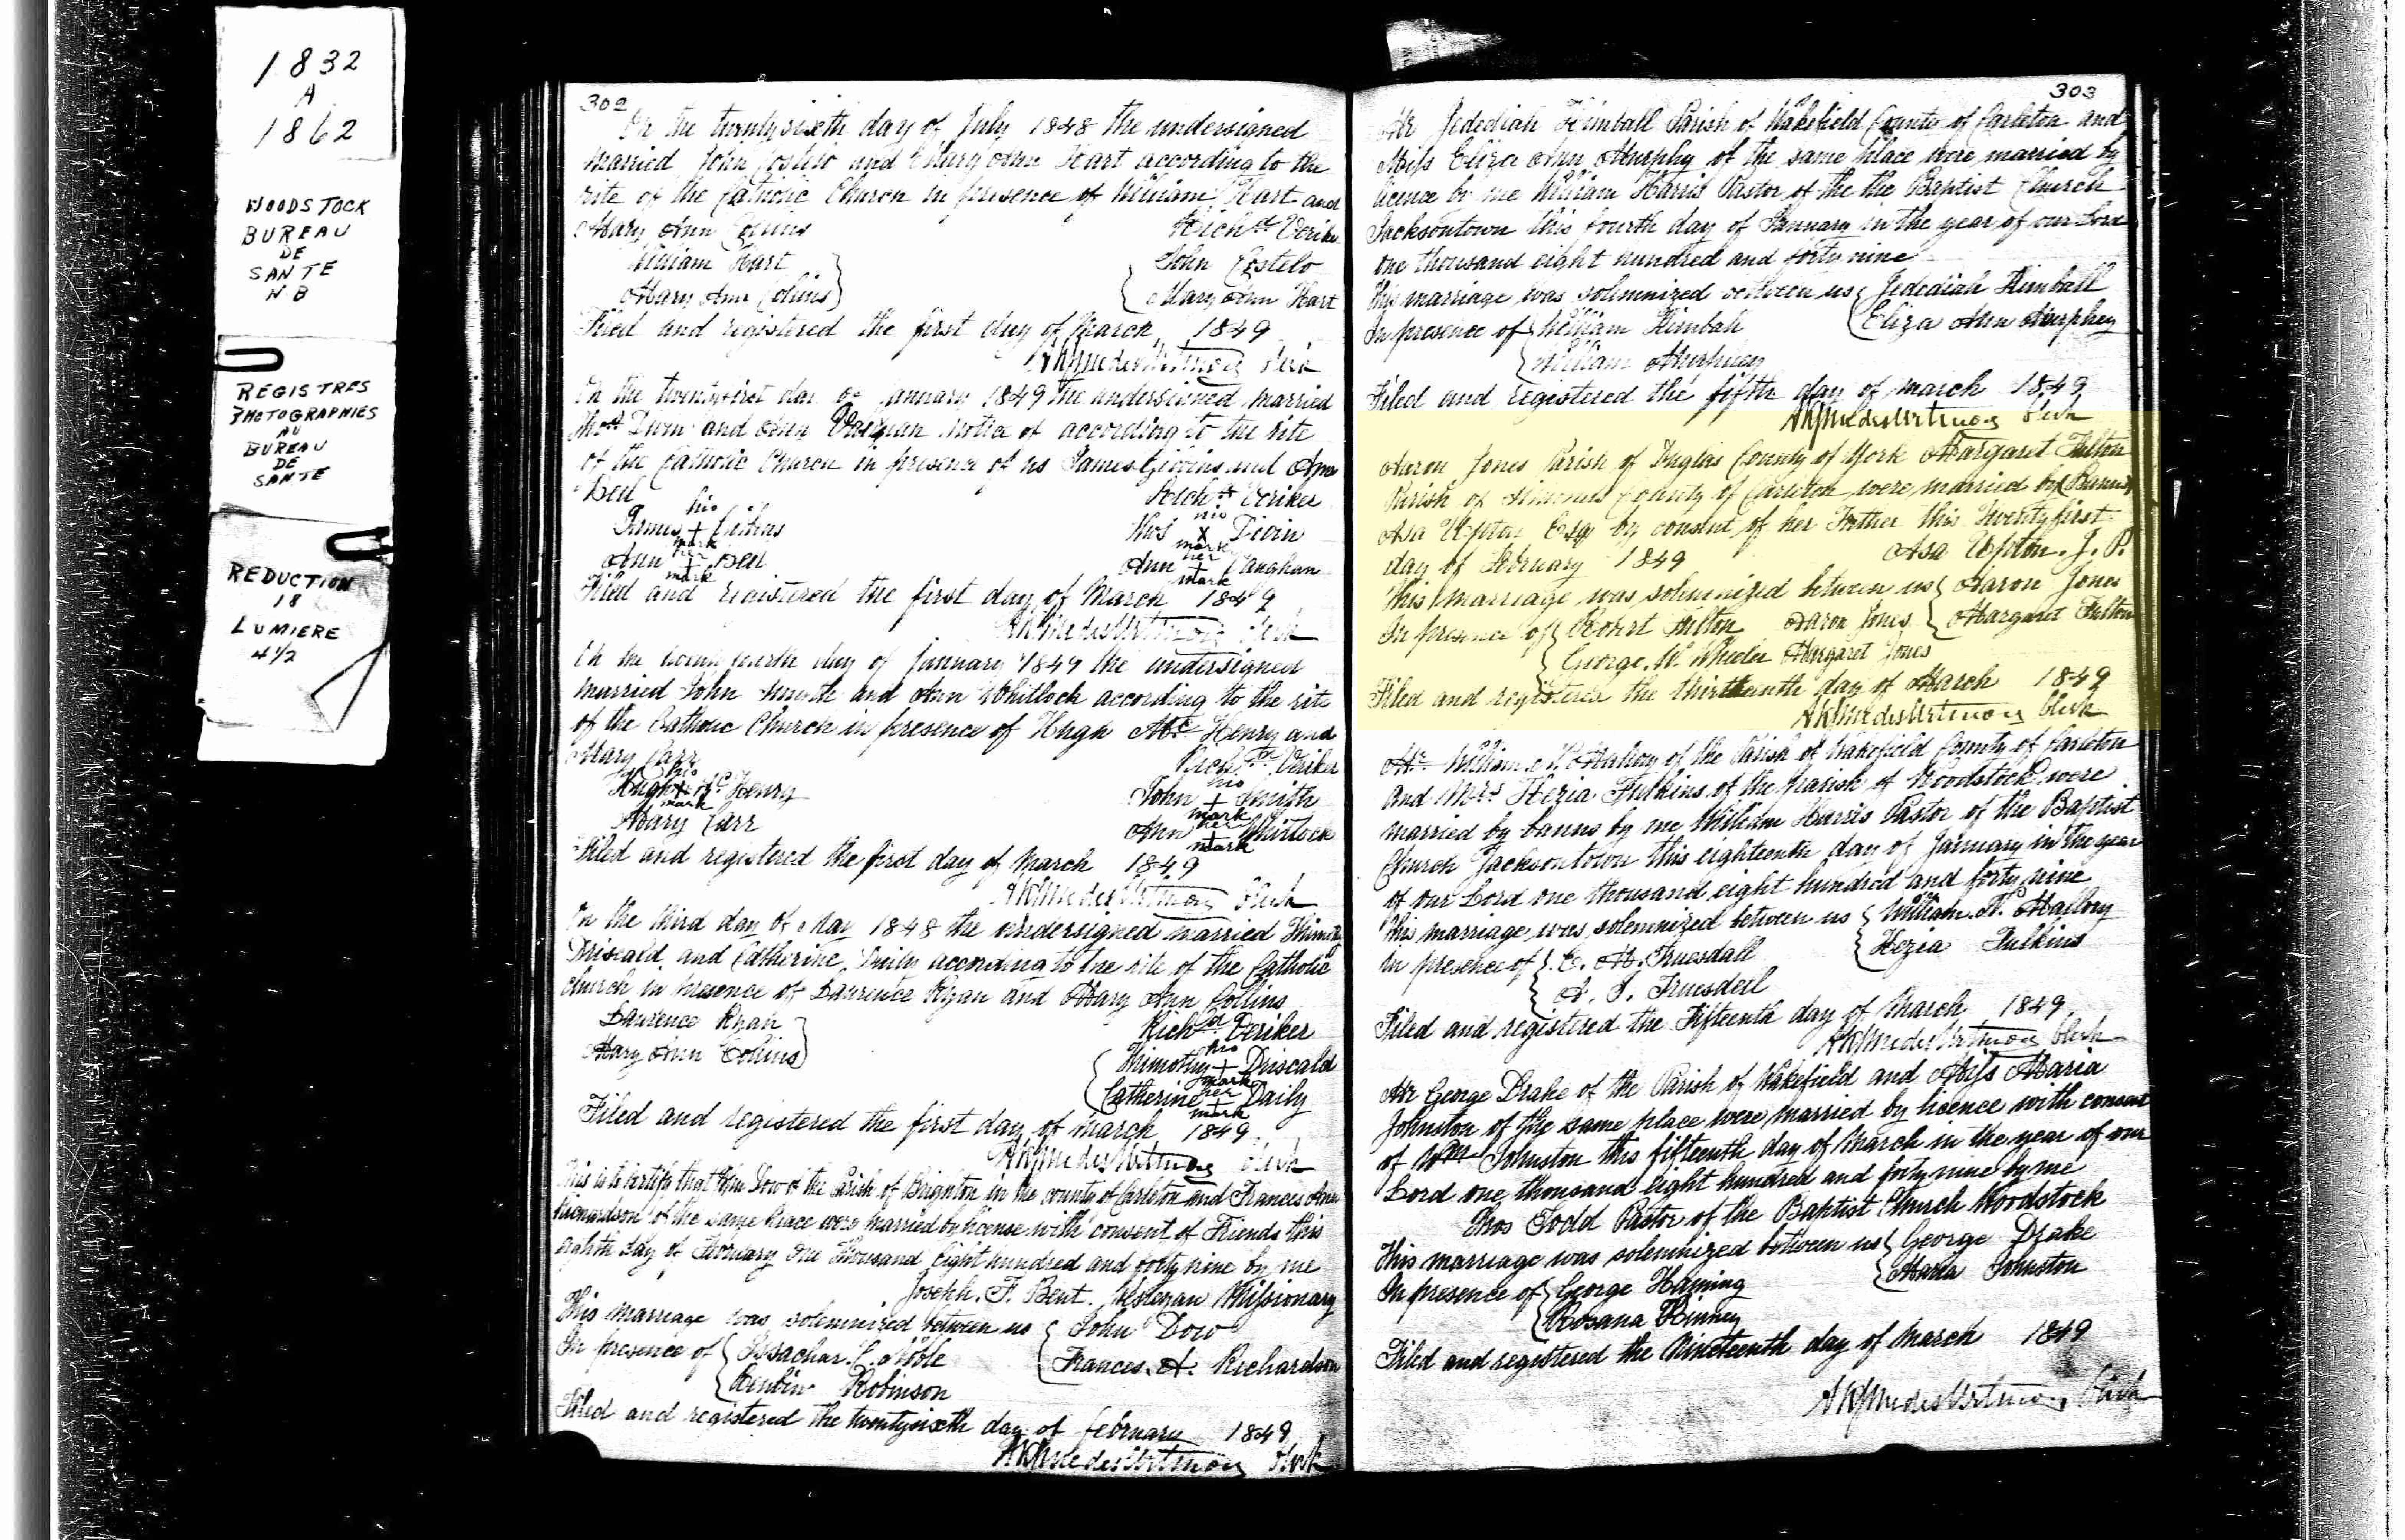 1832
A
1862
WOODSTOCK
BUREAU
DE
SANTE
N B
REGISTRES
PHOTOGRAPHIES
AU
BUREAU
DE
SANTE
REDUCTION
18
LUMIERE
4 1/2
302
On the twentysixth day of July 1848 the undersigned
married John Costelo and Mary Ann Hart according to the
rite of the Catholic Church in presence of William Hart and
Mary Ann Collins
Richd Veriker
William Hart
John Costelo
Mary Ann Collins
Mary Ann Hart
Filed and registered the first day of March 1849
Clerk
On the twentyfirst day of January 1849 the undersigned married
Thos and Ann notice of according to the rite
of the Catholic Church in presence of us James Givins and Ann
Bell
Richd Veriker
his
his
James +
Thos X
mark
mark
her
her
Ann + Bell
Ann + Vaughan
mark
mark
Filed and registered the first day of March 1849
Clerk
On the day of January 1849 the undersigned
married John Smith and Ann Whitlock according to the rite
of the Catholic Church in presence of Hugh Mc Henry and
Mary Carr
Richd Veriker
his
his
Hugh + Mc Henry
John + Smith
mark
mark
Mary Carr
her
Ann + Whitlock
mark
Filed and registered the first day of March 1849
Clerk
On the third day of May 1848 the undersigned married Thimothy
Driscald and Catherine Daily according to the rite of the Catholic
church in presence of Lawrence Ryan and Mary Ann Collins
Lawrence Ryan
Richd Veriker
Mary Ann Collins
his
Thimothy + Driscald
mark
her
Catherine + Daily
mark
Filed and registered the first day of March 1849
Clerk
This is to certify that John Dow of the Parish of Brighton in the county of Carleton and Frances Ann
Richardson of the same place were married by license with consent of Friends this
eighth day of February One thousand eight hundred and forty nine by me
Joseph. F. Bent. Wesleyan Missionary
This marriage was solemnized between us John Dow
In presence of Issachar.
Frances. A. Richardson
Robinson
Filed and registered the twentysixth day of february 1849
Clerk
303
Mr Jedediah Kimball Parish of Wakefield County of Carleton and
Miss Eliza Ann Murphy of the same place were married by
licence by me William Harris Pastor of the the Baptist Church
Jacksontown this fourth day of January in the year of our Lord
one thousand eight hundred and forty nine
This marriage was solemnized between us Jedediah Kimball
In presence of William Kimball
Eliza Ann Murphey
William Murphey
Filed and registered the fifth day of March 1849
Clerk
Aaron Jones Parish of Duglas County of York Margaret Fulton
Parish of County of Carleton were married by Banns
Asa Upton Esq by consent of her Father this Twentyfirst
day of February 1849 Asa Upton. J. P.
This marriage was solemnized between us Aaron Jones
In presence of Robert Fulton Aaron Jones Margaret Fulton
George. W Wheeler Margaret Jones
Filed and registered the thirteenth day of March 1849
Clerk
Mr William of the Parish of Wakefield County of Carleton
And Mrs Kezia Fulkins of the Parish of Woodstock were
married by banns by me William Harris Pastor of the Baptist
Church Jacksontown this eighteenth day of January in the year
of our Lord one thousand eight hundred and forty nine
This marriage was solemnized between us William N. Mallory
In presence of Truesdall
Kezia Fulkins
Truesdell
Filed and registered the Fifteenth day of March 1849
Clerk
Mr George Drake of the Parish of Wakefield and Miss Maria
Johnston of the same place were married by licence with consent
of Wm Johnston this fifteenth day of March in the year of our
Lord one thousand eight hundred and forty nine by me
Thos Todd Pastor of the Baptist Church Woodstock
This marriage was solemnized between us George Drake
In presence of George Haming
Maria Johnston
Rosana Kinney
Filed and registered the Nineteenth day of March 1849
Clerk